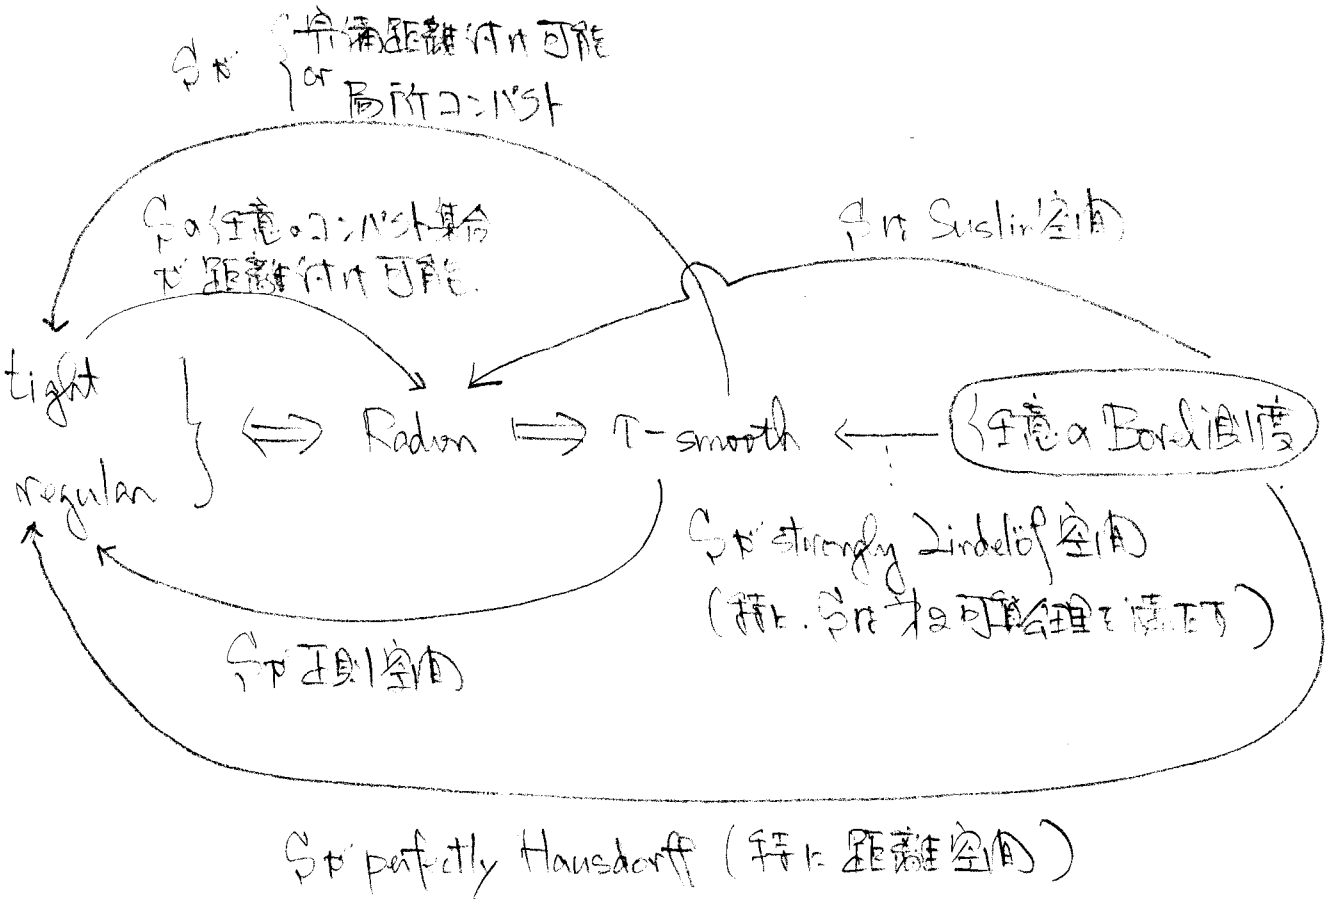 Sが { 完備距離付け可能
or
局所コンパクト
Sの任意のコンパクト集合
が距離付け可能.
SはSuslin空間
tight
regular
} ⇔ Radon ⇒ τ-smooth ← 任意のBorel測度
Sがstrongly Lindelöf空間
(特に、Sは第2可算公理を満たす)
Sが正則空間
Sがperfectly Hausdorff (特に距離空間)